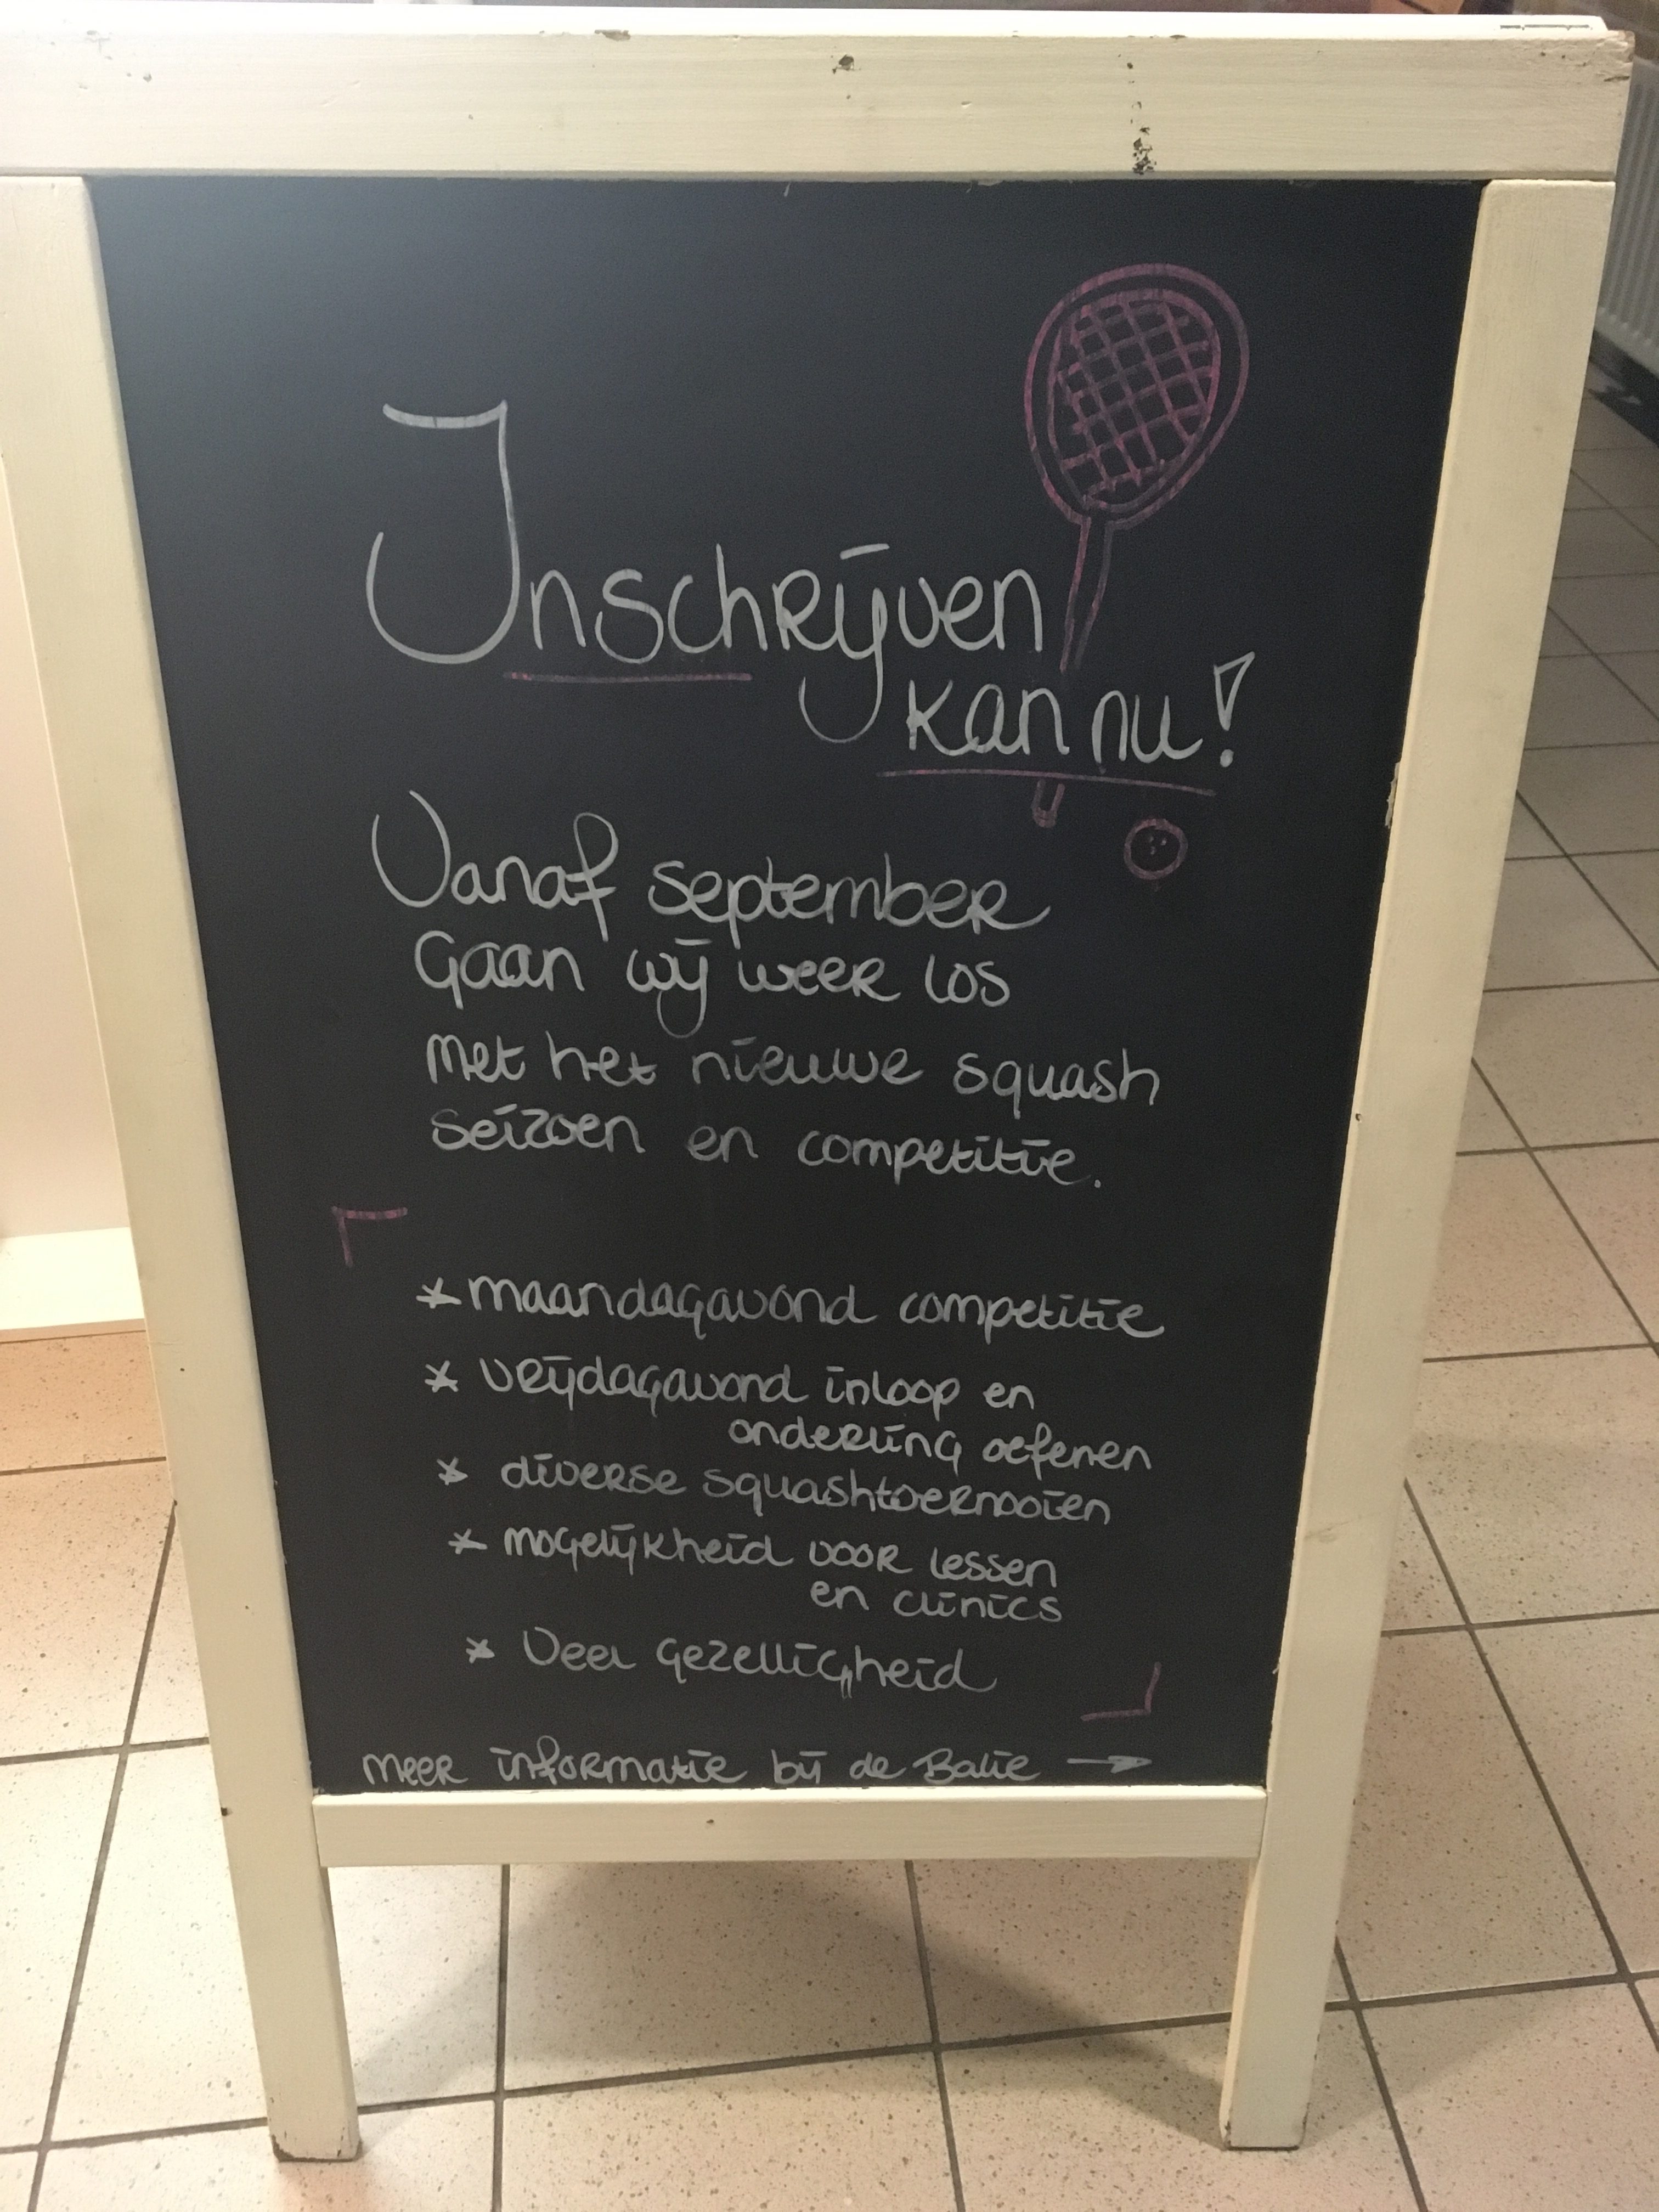 Inschrijven
kan nu!
Vanaf september
Gaan wij weer los
met het nieuwe squash
seizoen en competitie.
* maandagavond competitie
* vrijdagavond inloop en
onderling oefenen
* diverse squashtoernooien
* mogelijkheid voor lessen
en clinics
* Veel gezelligheid
meer informatie bij de Balie →